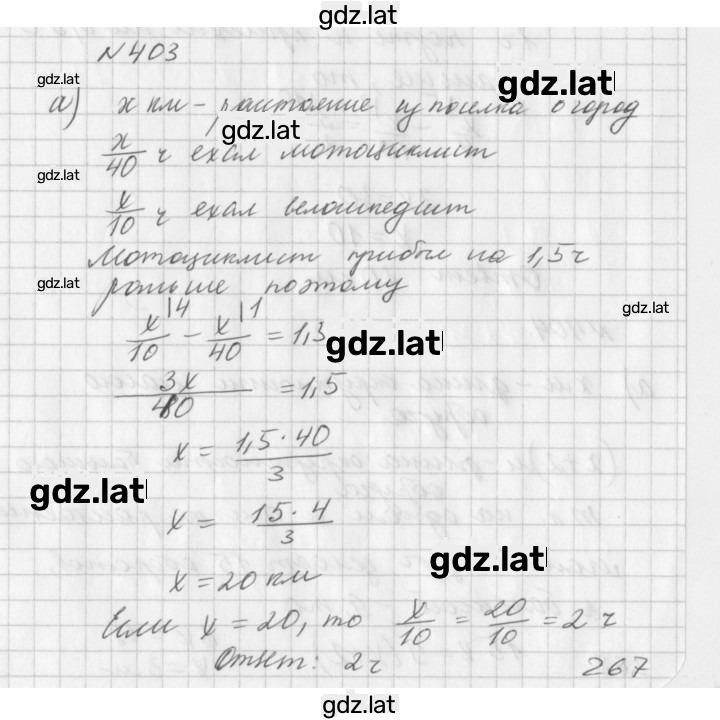 gdz.lat
N 403
gdz.lat
gdz.lat
а) x км - расстояние из поселка в город
gdz.lat
x/40 ч ехал мотоциклист
gdz.lat
x/10 ч ехал велосипедист
Мотоциклист прибыл на 1,5 ч
gdz.lat
раньше поэтому
gdz.lat
x/10 |4 - x/40 |1 = 1,3
gdz.lat
3x/40 = 1,5
x = 1,5 · 40/3
gdz.lat
x = 15 · 4/3
gdz.lat
x = 20 км
Если x = 20, то x/10 = 20/10 = 2 ч
Ответ: 2 ч
267
gdz.lat